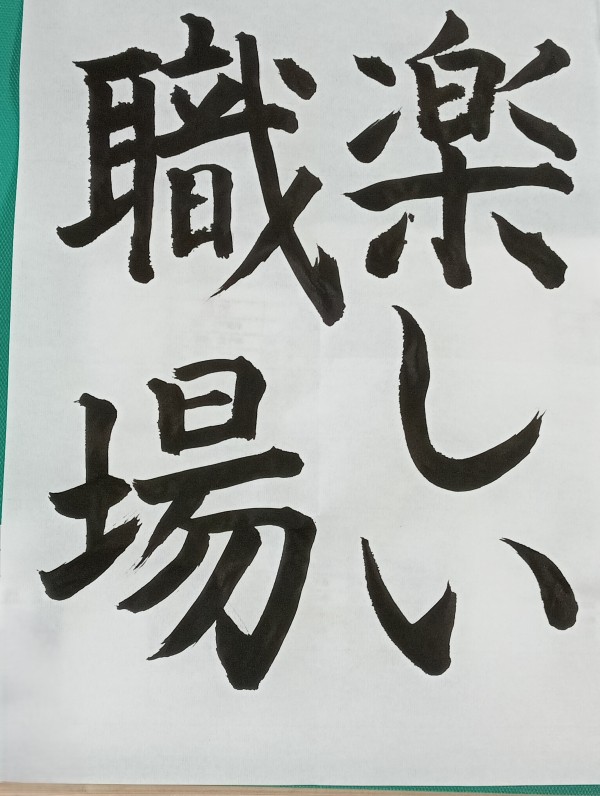 楽しい
職場